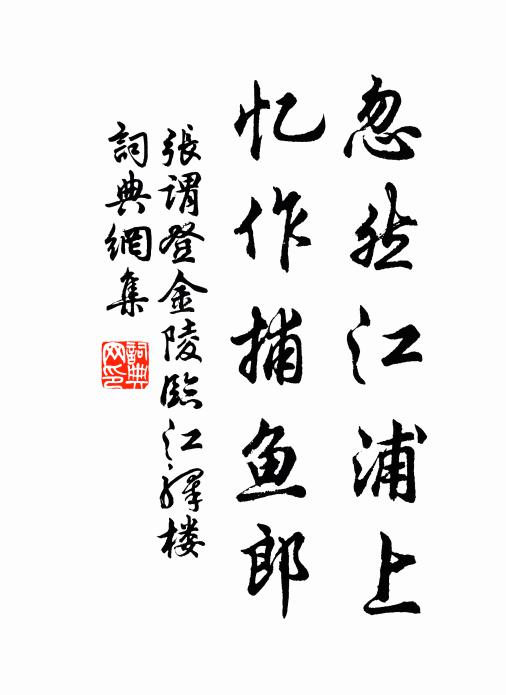 忽然江浦上
忆作捕鱼郎
張谓登金陵臨江驛楼
詞典網集
詞典网印